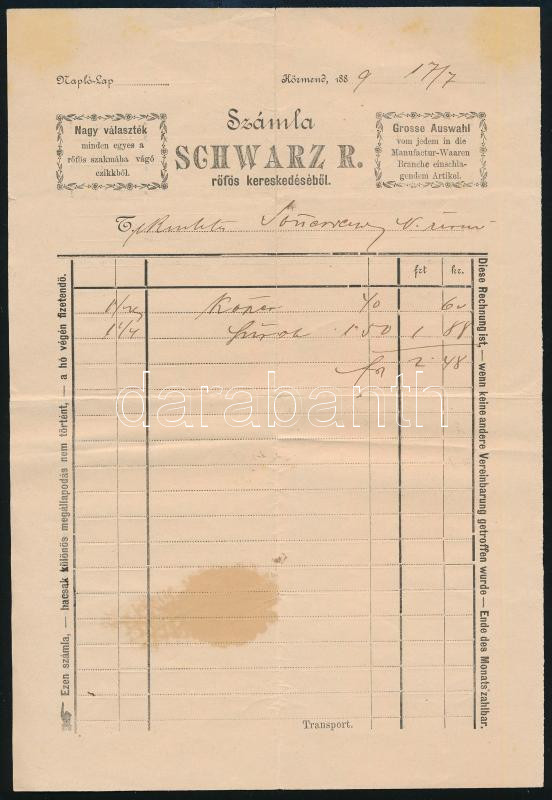 Napló-Lap
Körmend, 188 9 17/7
Nagy választék
minden egyes a
rőfös szakmába vágó
czikkből.
Számla
SCHWARZ R.
rőfös kereskedéséből.
Grosse Auswahl
vom jedem in die
Manufactur-Waaren
Branche einschla-
gendem Artikel.
T.
frt kr.
40 60
1 1/4 150 1 88
2 48
Ezen számla, — hacsak különös megállapodás nem történt, — a hó végén fizetendő.
Diese Rechnung ist, — wenn keine andere Vereinbarung getroffen wurde — Ende des Monats zahlbar.
darabanth
Transport.